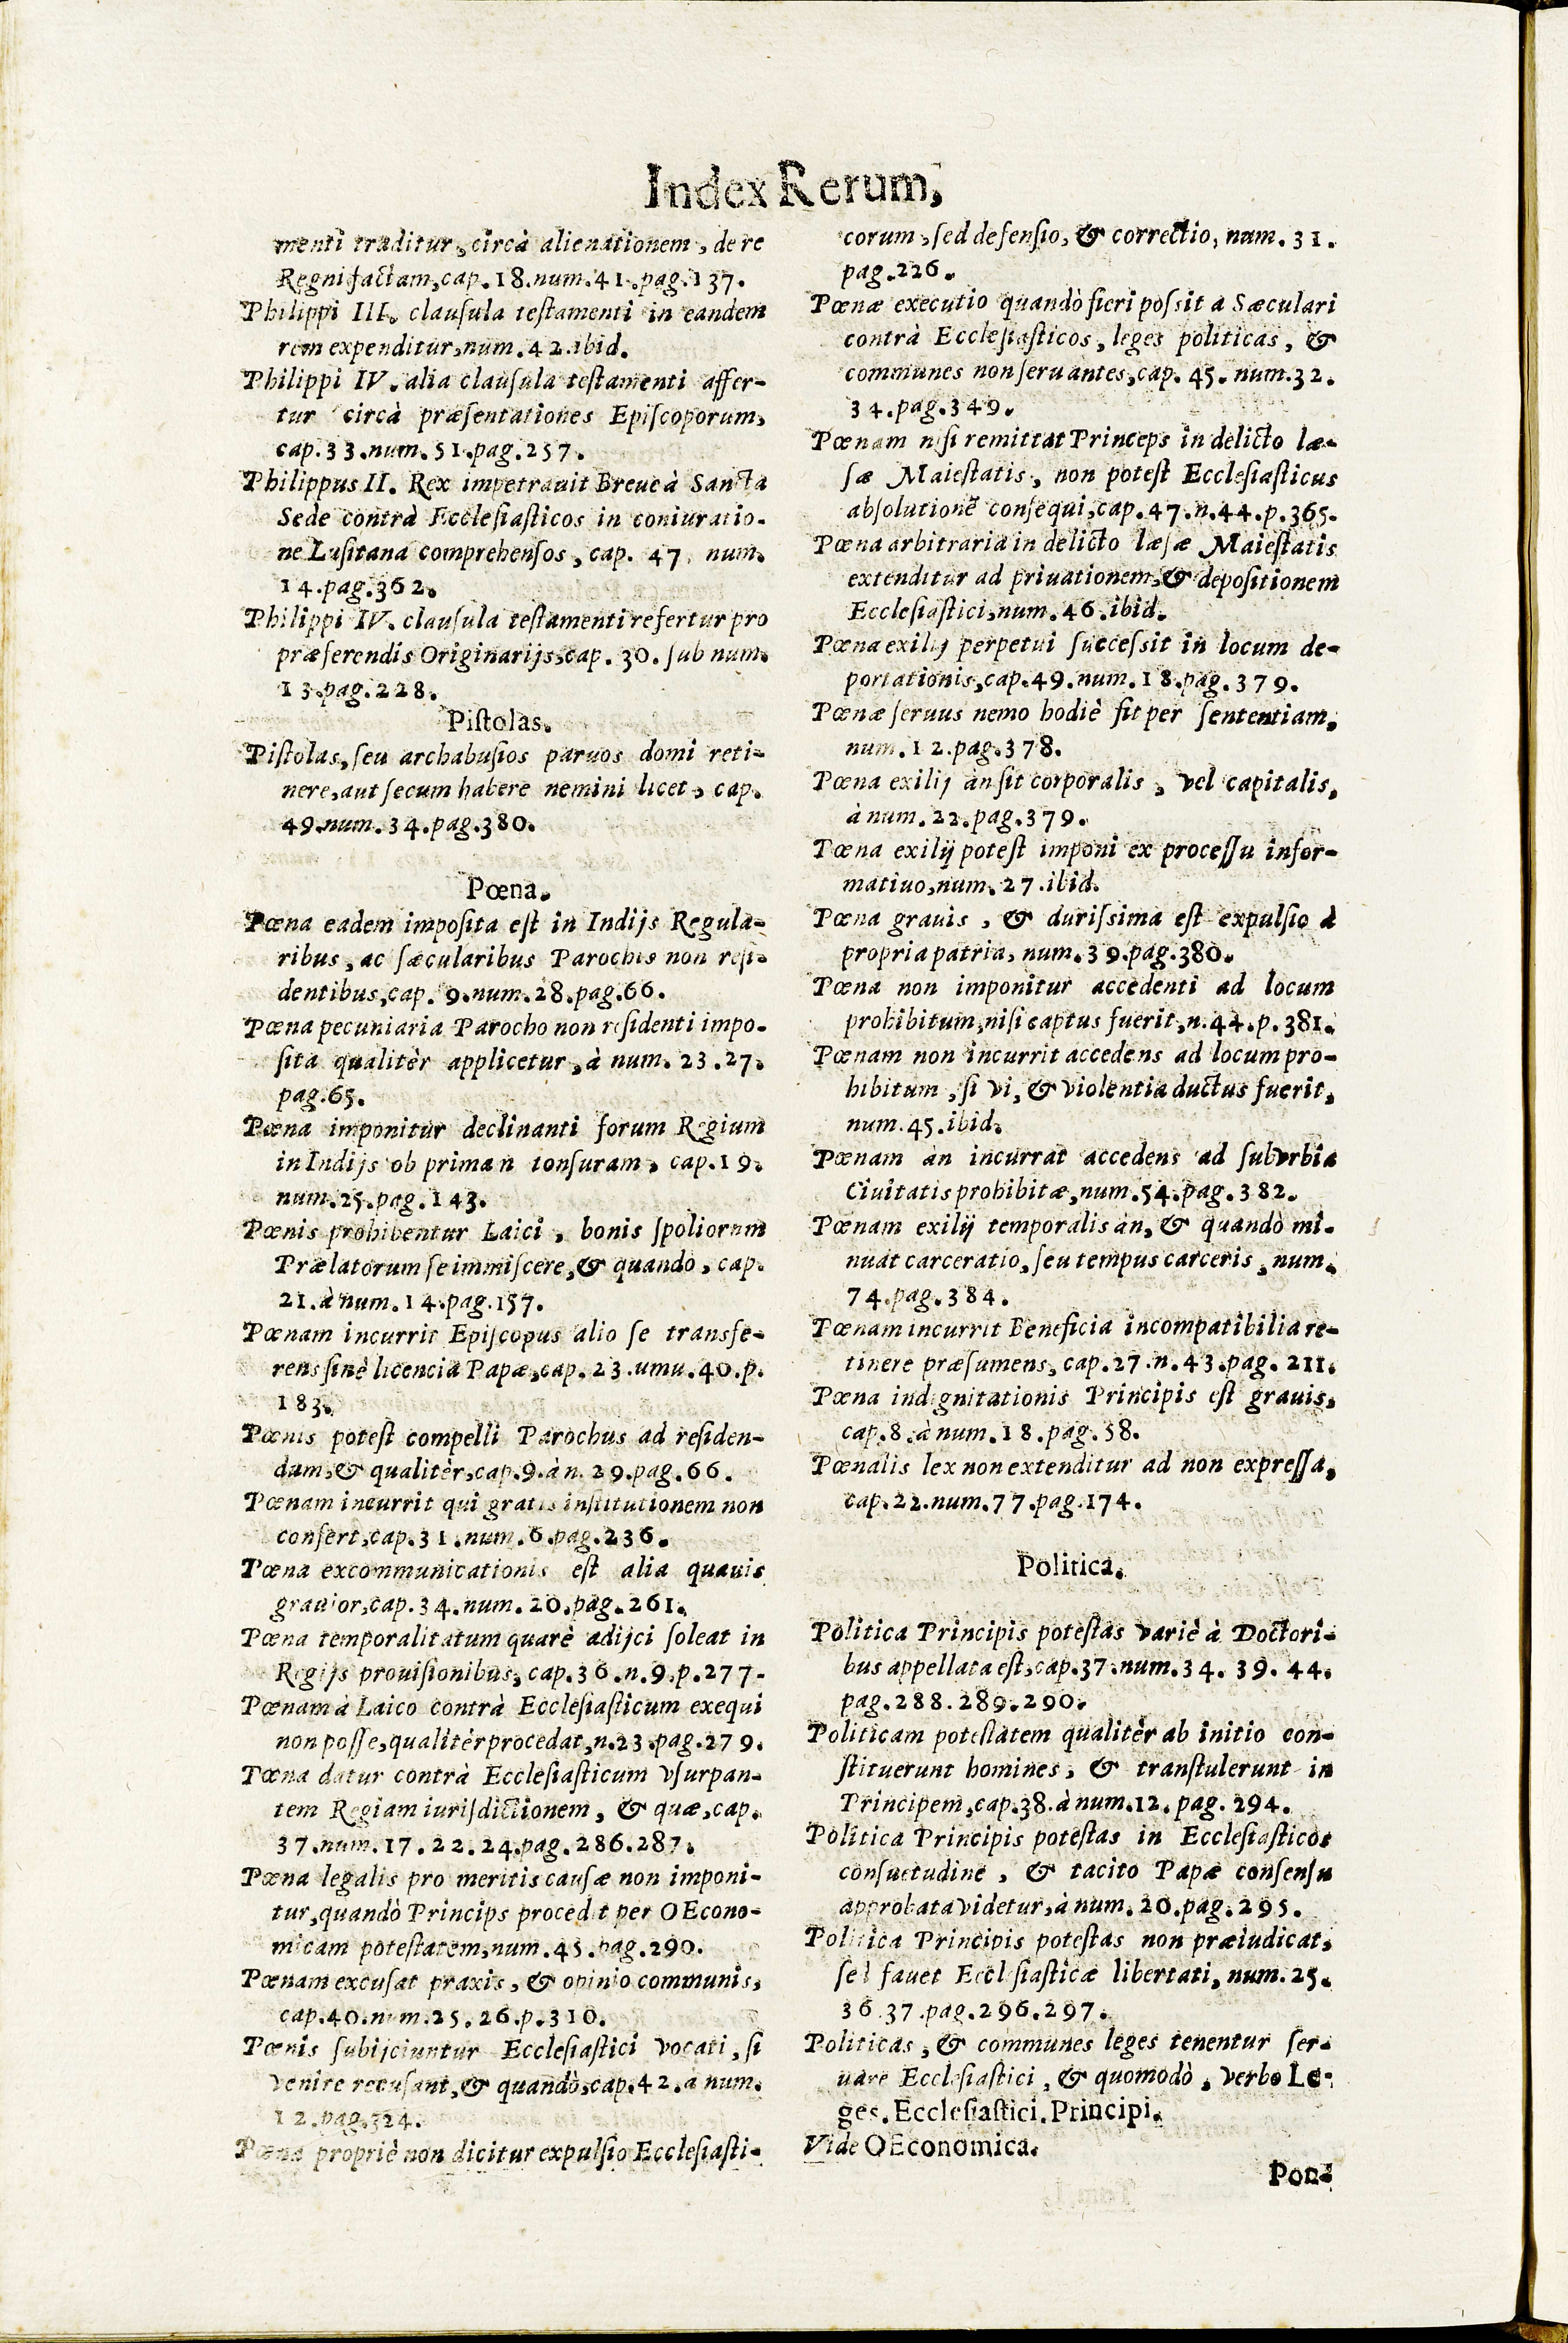 Index Rerum,
menti traditur, circà alienationem, de re
Regni factam, cap. 18. num. 41. pag. 137.
Philippi III. clauſula teſtamenti in eandem
rem expenditur, num. 42. ibid.
Philippi IV. alia clauſula teſtamenti affer-
tur circà præſentationes Epiſcoporum,
cap. 33. num. 51. pag. 257.
Philippus II. Rex impetrauit Breue à Sancta
Sede contrà Eccleſiaſticos in coniuratio-
ne Luſitana comprehenſos, cap. 47. num.
14. pag. 362.
Philippi IV. clauſula teſtamenti refertur pro
præferendis Originarijs, cap. 30. ſub num.
13. pag. 228.
Piſtolas.
Piſtolas, ſeu archabuſios paruos domi reti-
nere, aut ſecum habere nemini licet, cap.
49. num. 34. pag. 380.
Pœna.
Pœna eadem impoſita eſt in Indijs Regula-
ribus, ac ſæcularibus Parochis non reſi-
dentibus, cap. 9. num. 28. pag. 66.
Pœna pecuniaria Parocho non reſidenti impo-
ſita qualitèr applicetur, à num. 23. 27.
pag. 65.
Pœna imponitur declinanti forum Regium
in Indijs ob primam tonſuram, cap. 19.
num. 25. pag. 143.
Pœnis prohibentur Laici, bonis ſpoliorum
Prælatorum ſe immiſcere, & quando, cap.
21. à num. 14. pag. 157.
Pœnam incurrit Epiſcopus alio ſe transfe-
rens ſinè licencia Papæ, cap. 23. umu. 40. p.
183.
Pœnis poteſt compelli Parochus ad reſiden-
dum, & qualitèr, cap. 9. à n. 29. pag. 66.
Pœnam incurrit qui gratis inſtitutionem non
confert, cap. 31. num. 6. pag. 236.
Pœna excommunicationis eſt alia quauis
grauior, cap. 34. num. 20. pag. 261.
Pœna temporalitatum quarè adijci ſoleat in
Regijs prouiſionibus, cap. 36. n. 9. p. 277.
Pœnam à Laico contrà Eccleſiaſticum exequi
non poſſe, qualitèr procedat, n. 23. pag. 279.
Pœna datur contrà Eccleſiaſticum vſurpan-
tem Regiam iuriſdictionem, & quæ, cap.
37. num. 17. 22. 24. pag. 286. 287.
Pœna legalis pro meritis cauſæ non imponi-
tur, quandò Princips procedit per OEcono-
micam poteſtatem, num. 45. pag. 290.
Pœnam excuſat praxis, & opinio communis,
cap. 40. num. 25. 26. p. 310.
Pœnis ſubijciuntur Eccleſiaſtici vocati, ſi
venire recuſant, & quandò, cap. 42. à num.
12. pag. 324.
Pœna propriè non dicitur expulſio Eccleſiaſti-
corum, ſed defenſio, & correctio, num. 31.
pag. 226.
Pœnæ executio quandò fieri poſsit a Sæculari
contrà Eccleſiaſticos, leges politicas, &
communes non ſeruantes, cap. 45. num. 32.
34. pag. 349.
Pœnam niſi remittat Princeps in delicto læ-
ſæ Maieſtatis, non poteſt Eccleſiaſticus
abſolutionẽ conſequi, cap. 47. n. 44. p. 365.
Pœna arbitraria in delicto læſæ Maieſtatis
extenditur ad priuationem, & depoſitionem
Eccleſiaſtici, num. 46. ibid.
Pœna exilij perpetui ſucceſsit in locum de-
portationis, cap. 49. num. 18. pag. 379.
Pœnæ ſeruus nemo hodiè fit per ſententiam,
num. 12. pag. 378.
Pœna exilij àn ſit corporalis, vel capitalis,
à num. 22. pag. 379.
Pœna exilij poteſt imponi ex proceſſu infor-
matiuo, num. 27. ibid.
Pœna grauis, & duriſsima eſt expulſio à
propria patria, num. 39. pag. 380.
Pœna non imponitur accedenti ad locum
prohibitum, niſi captus fuerit, n. 44. p. 381.
Pœnam non incurrit accedens ad locum pro-
hibitum, ſi vi, & violentia ductus fuerit,
num. 45. ibid.
Pœnam àn incurrat accedens ad ſubvrbia
Ciuitatis prohibitæ, num. 54. pag. 382.
Pœnam exilij temporalis àn, & quandò mi-
nuat carceratio, ſeu tempus carceris, num.
74. pag. 384.
Pœnam incurrit Beneficia incompatibilia re-
tinere præſumens, cap. 27. n. 43. pag. 211.
Pœna indignitationis Principis eſt grauis,
cap. 8. à num. 18. pag. 58.
Pœnalis lex non extenditur ad non expreſſa,
cap. 22. num. 77. pag. 174.
Politica.
Politica Principis poteſtas variè à Doctori-
bus appellata eſt, cap. 37. num. 34. 39. 44.
pag. 288. 289. 290.
Politicam poteſtatem qualitèr ab initio con-
ſtituerunt homines, & tranſtulerunt in
Principem, cap. 38. à num. 12. pag. 294.
Politica Principis poteſtas in Eccleſiaſticos
conſuetudine, & tacito Papæ conſenſu
approbata videtur, à num. 20. pag. 295.
Politica Principis poteſtas non præiudicat,
ſed fauet Eccleſiaſticæ libertati, num. 25.
36. 37. pag. 296. 297.
Politicas, & communes leges tenentur ſer-
uare Eccleſiaſtici, & quomodò, verbo Le-
ges. Eccleſiaſtici. Principi.
Vide OEconomica.
Pon-